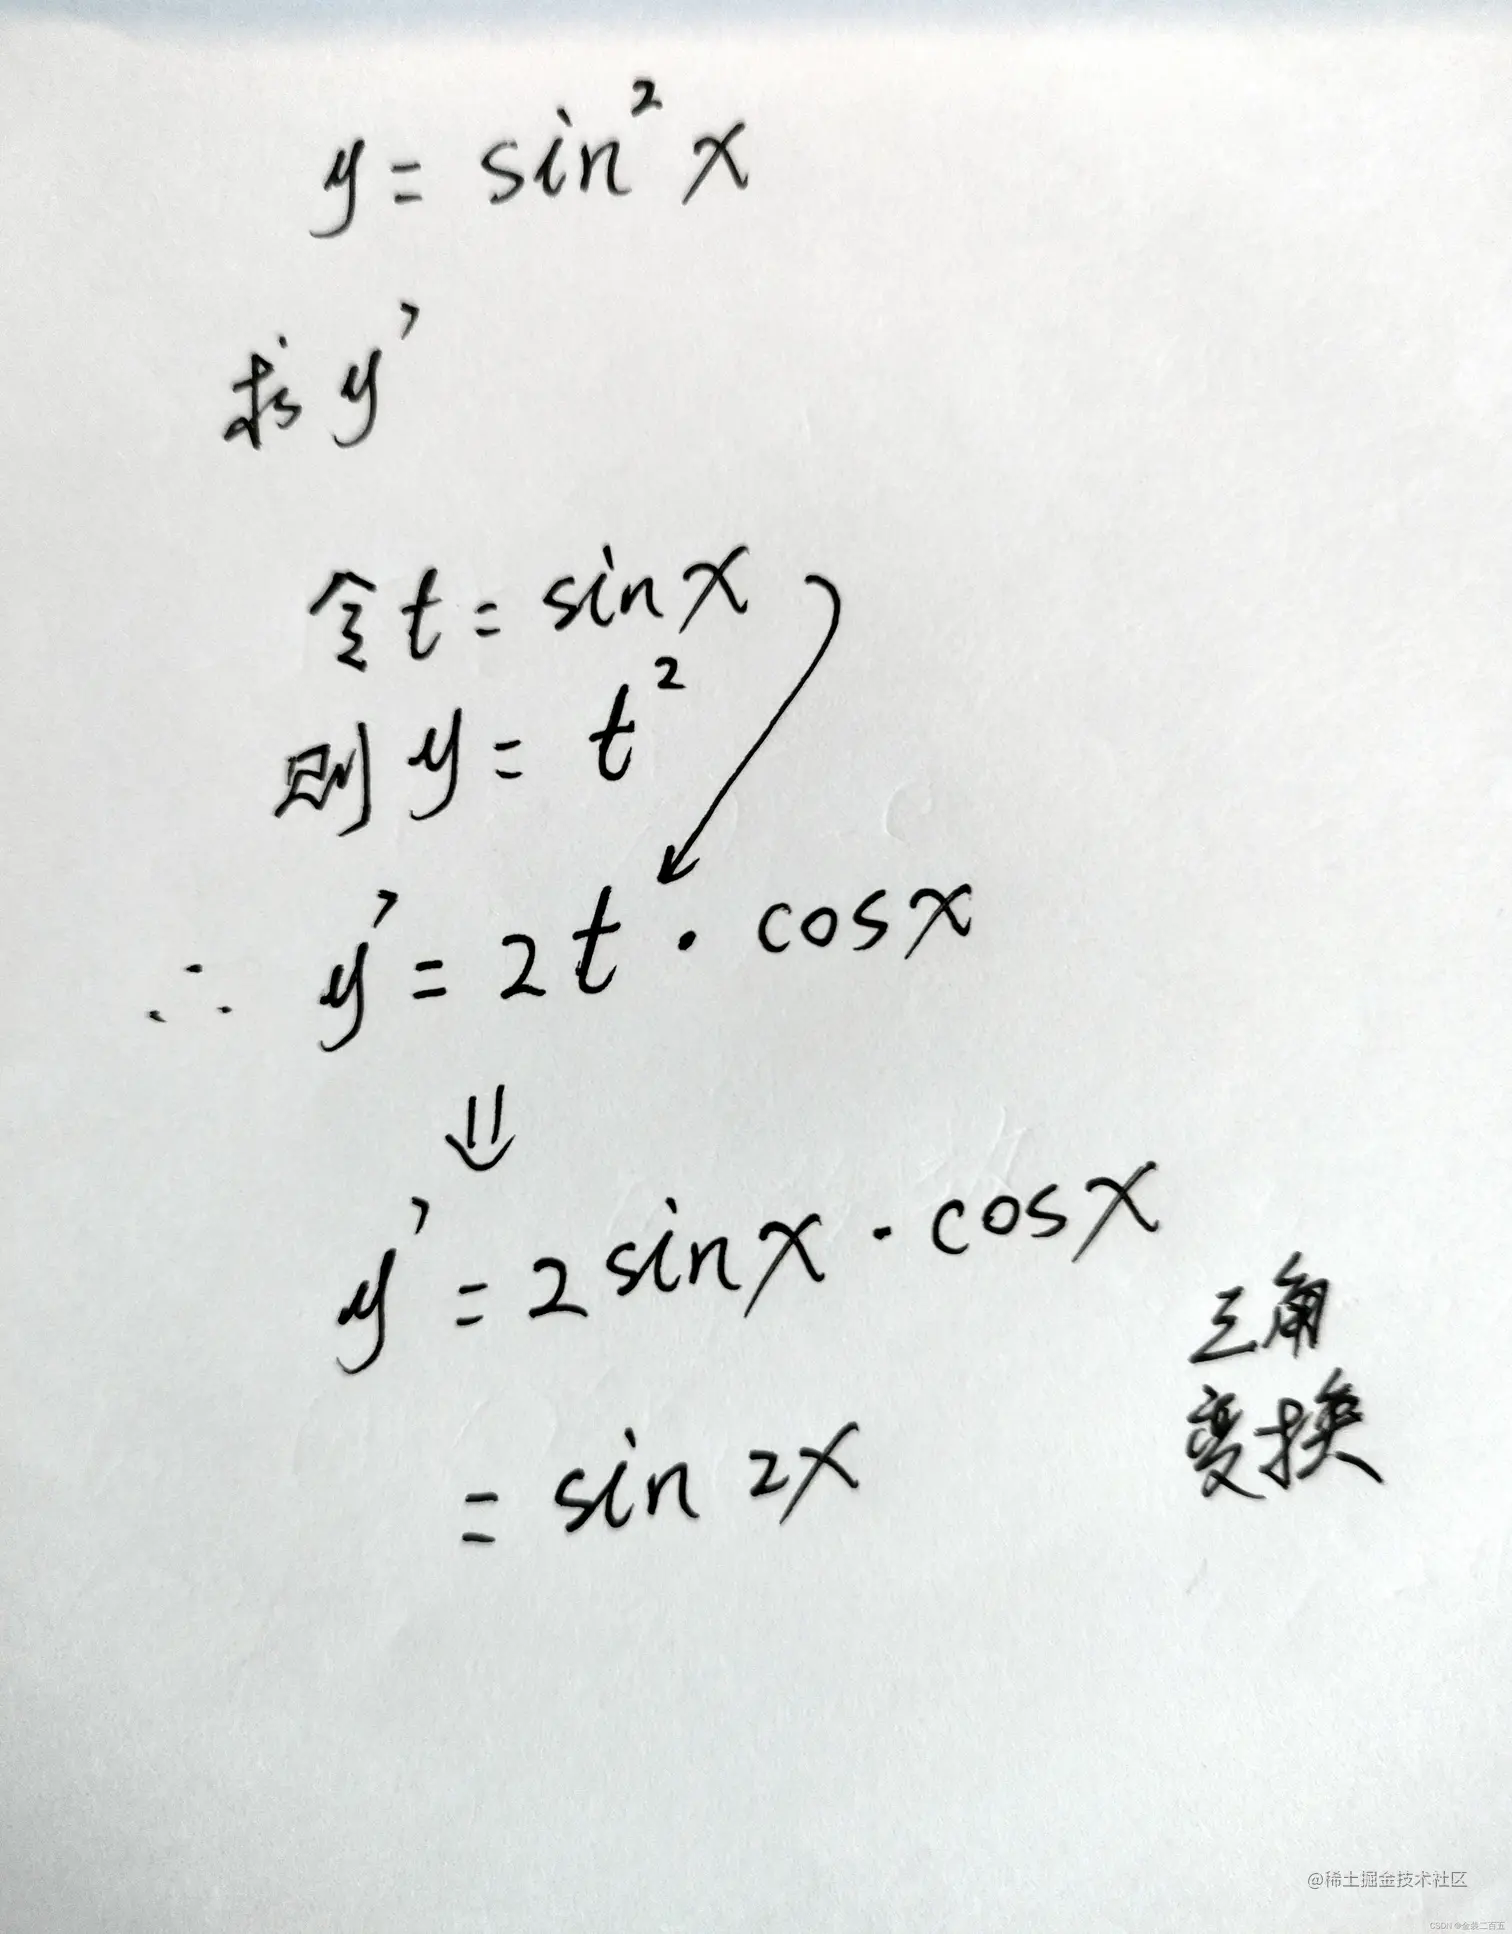 y = sin² x
求 y'
令 t = sin x
则 y = t²
∴ y' = 2t · cos x
⇓
y' = 2 sin x · cos x
三角
变换
= sin 2x
@稀土掘金技术社区
CSDN @金装二百五